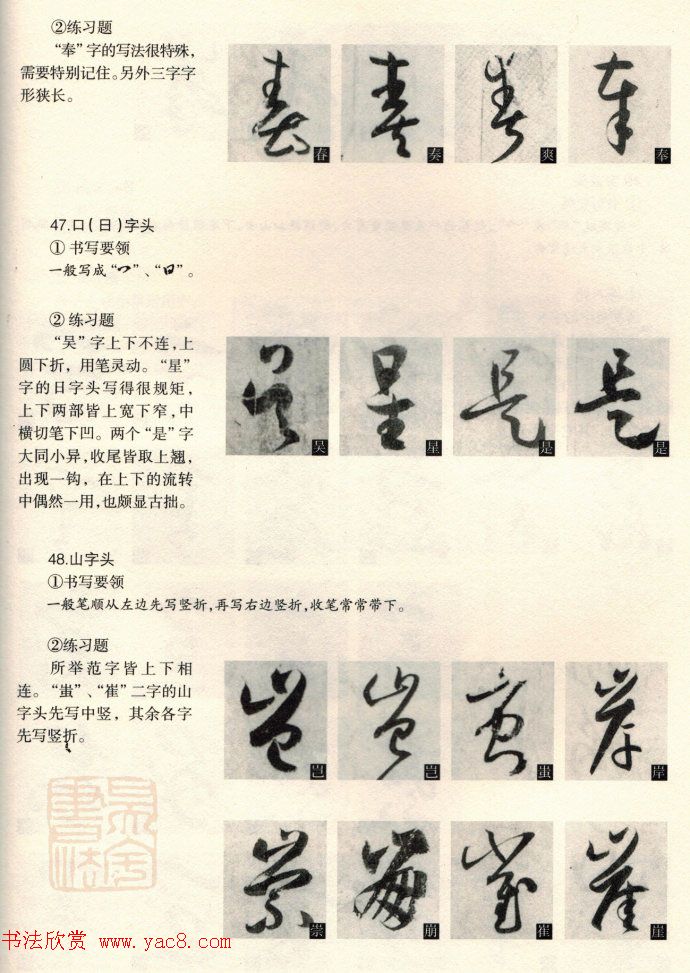 ②练习题
“奉”字的写法很特殊，
需要特别记住。另外三字字
形狭长。
春 奏 爽 奉
47.口(日)字头
① 书写要领
一般写成“𠃌”、“日”。
② 练习题
“吴”字上下不连，上
圆下折，用笔灵动。“星”
字的日字头写得很规矩，
上下两部皆上宽下窄，中
横切笔下凹。两个“是”字
大同小异，收尾皆取上翘，
出现一钩，在上下的流转
中偶然一用，也颇显古拙。
吴 星 是 是
48.山字头
①书写要领
一般笔顺从左边先写竖折，再写右边竖折，收笔常常带下。
②练习题
所举范字皆上下相
连。“蚩”、“崔”二字的山
字头先写中竖，其余各字
先写竖折。
岂 岂 蚩 岸
崇 崩 崔 崖
书法欣赏 www.yac8.com